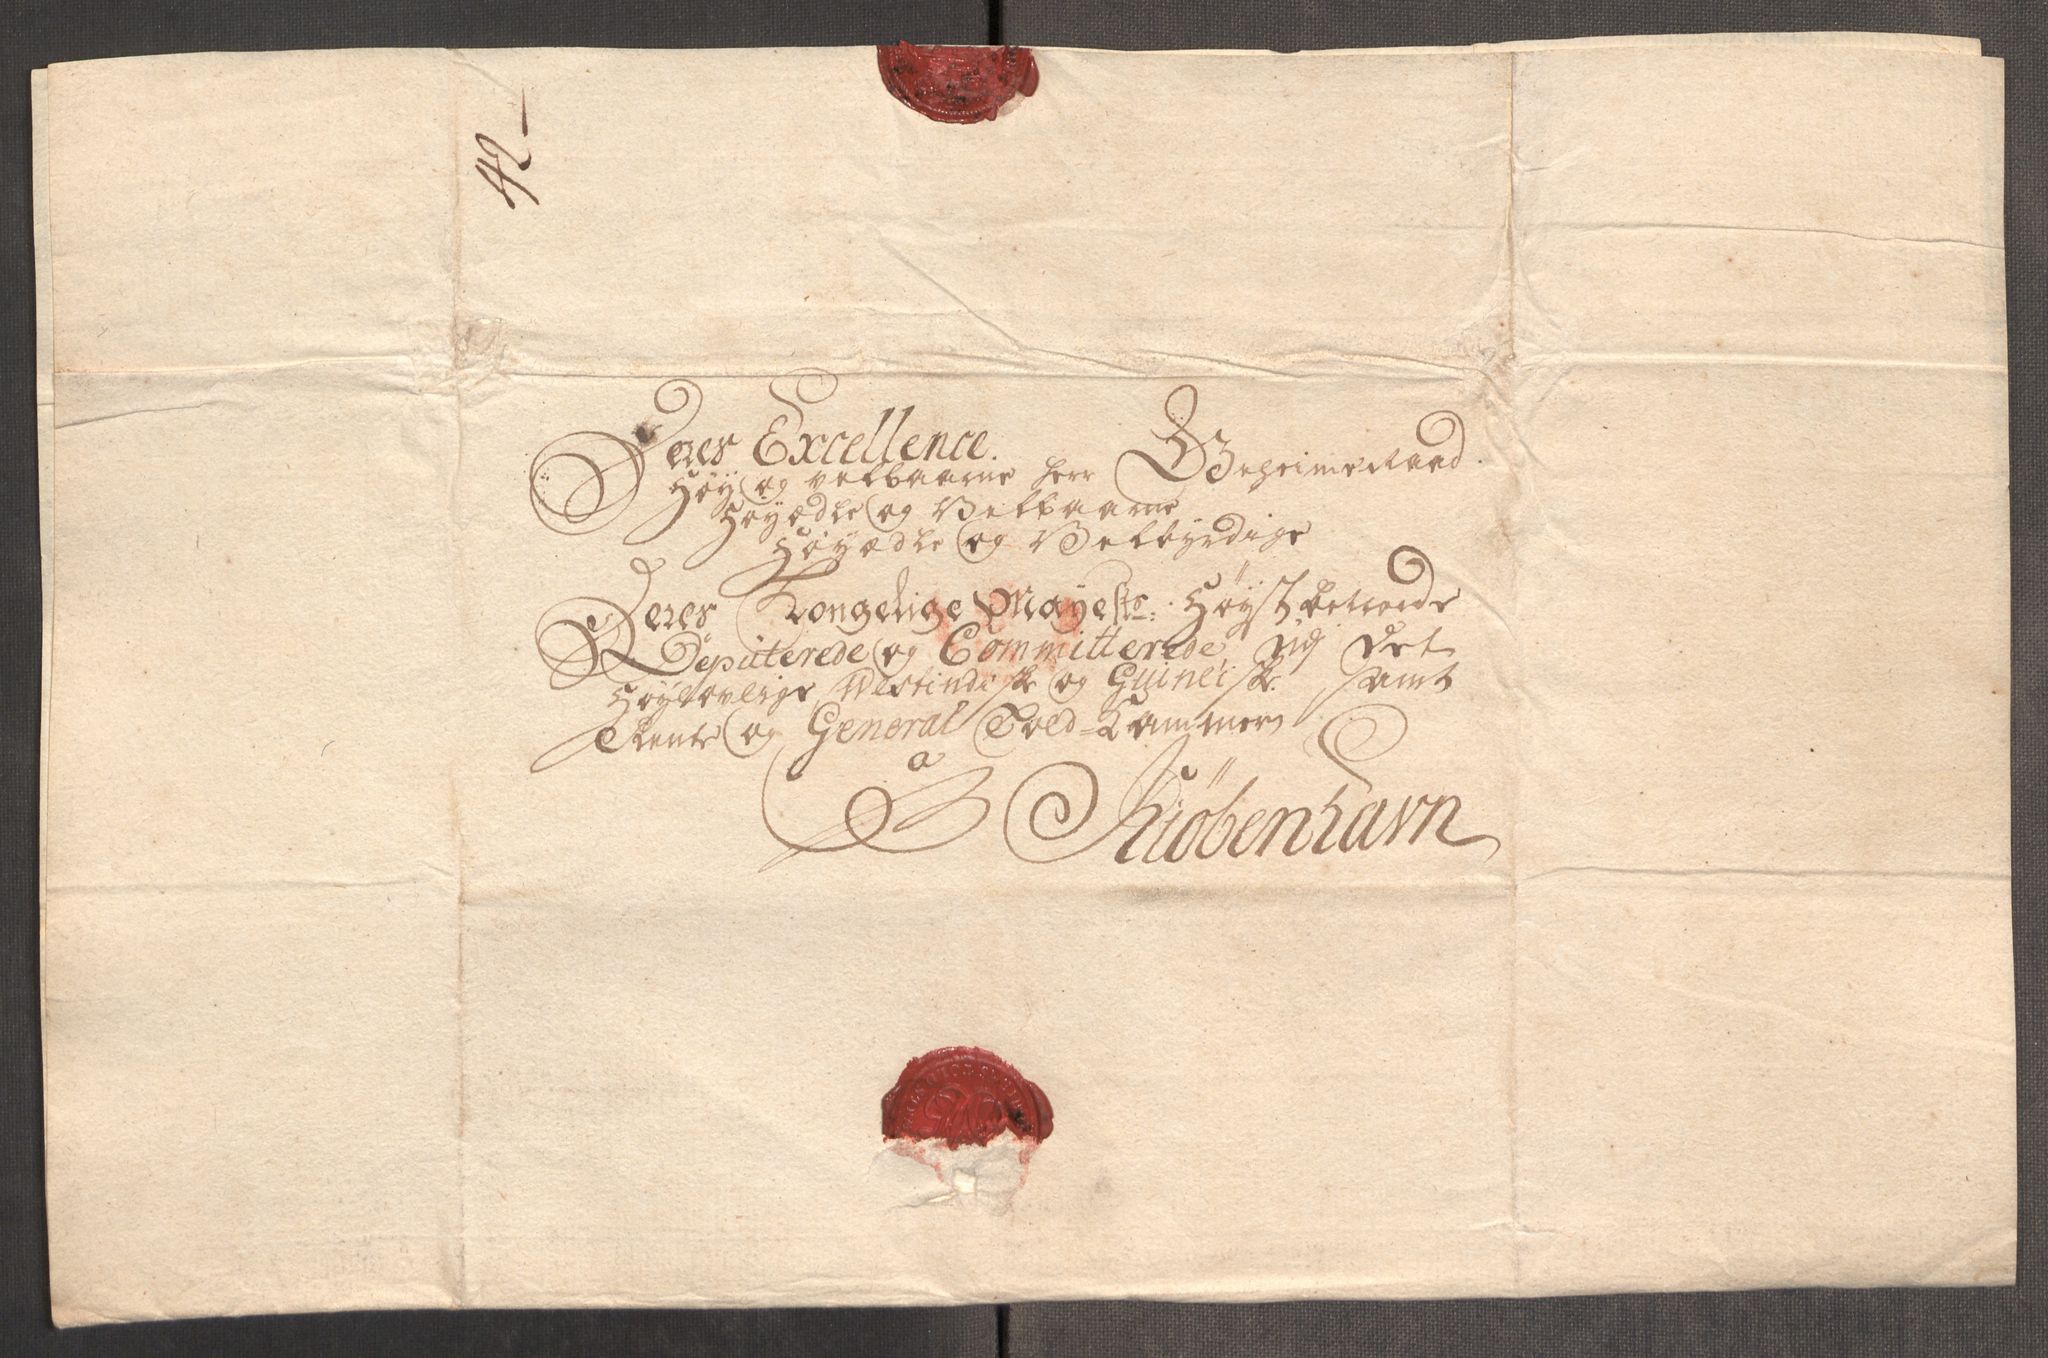 42 –
Deres Excellence.
Høy og velbaarne herr Geheime Raad.
Høyædle og Velbaarne
Høyædle og Velbyrdige
Deres Kongelige Mayestts: Høyst betroede
Deputerede og Committerede ved det
Høylovlige Westindiske og Guineiske samt
Rente og General Told-Kammer
a
Kiöbenhavn